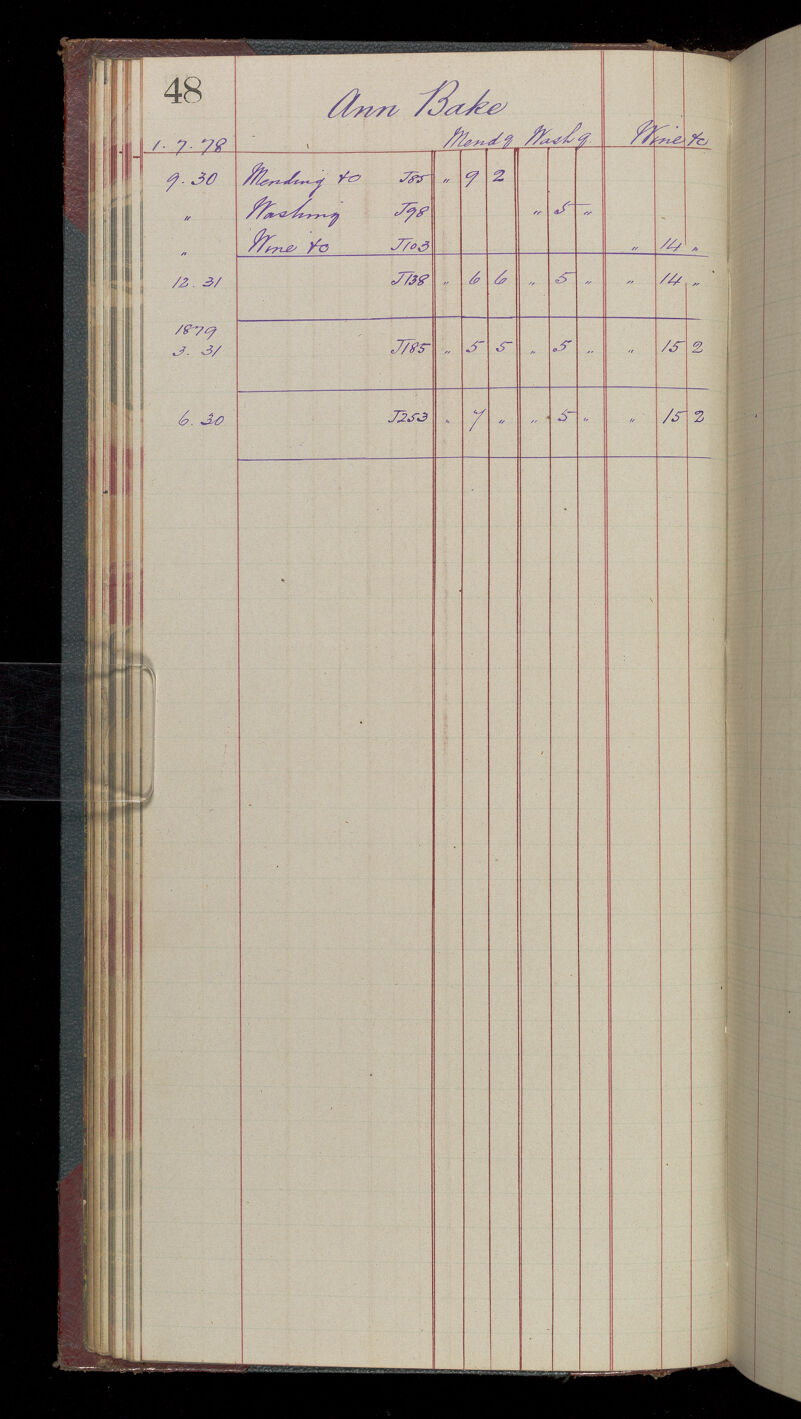 48
Ann Bake
1.7.78 Mendg Washg Wine &c
9.30 Mending &c J85 " 9 2
" Washing J98 " 5 "
" Wine &c J103 " 14 "
12.31 J138 " 6 6 " 5 " " 14 "
1879
3.31 J185 " 5 5 " 5 " " 15 2
6.30 J253 " 7 " " 5 " " 15 2